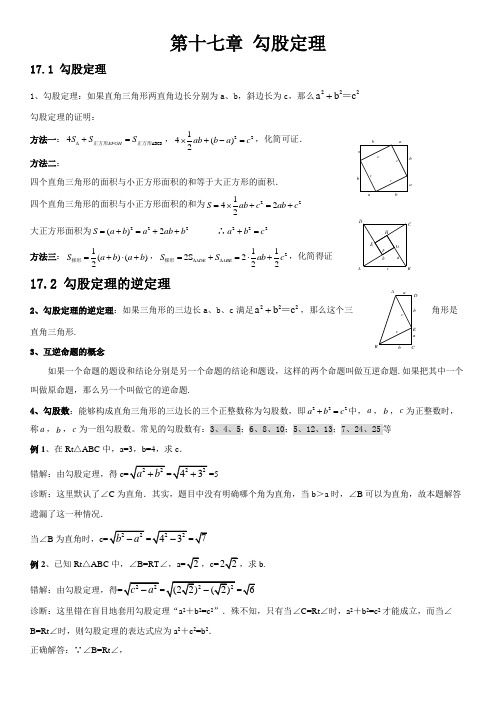 第十七章 勾股定理
17.1 勾股定理
1、勾股定理:如果直角三角形两直角边长分别为a、b,斜边长为c,那么a²+b²=c²
勾股定理的证明:
方法一:4S△+S正方形EFGH=S正方形ABCD,4×½ab+(b-a)²=c²,化简可证.
方法二:
四个直角三角形的面积与小正方形面积的和等于大正方形的面积.
四个直角三角形的面积与小正方形面积的和为S=4×½ab+c²=2ab+c²
大正方形面积为S=(a+b)²=a²+2ab+b² ∴a²+b²=c²
方法三:S梯形=½(a+b)·(a+b),S梯形=2S△ADE+S△ABE=2·½ab+½c²,化简得证
17.2 勾股定理的逆定理
2、勾股定理的逆定理:如果三角形的三边长a、b、c满足a²+b²=c²,那么这个三 角形是
直角三角形.
3、互逆命题的概念
如果一个命题的题设和结论分别是另一个命题的结论和题设,这样的两个命题叫做互逆命题.如果把其中一个
叫做原命题,那么另一个叫做它的逆命题.
4、勾股数:能够构成直角三角形的三边长的三个正整数称为勾股数,即a²+b²=c²中,a,b,c为正整数时,
称a,b,c为一组勾股数.常见的勾股数有:3、4、5;6、8、10;5、12、13;7、24、25等
例1、在Rt△ABC中,a=3,b=4,求c.
错解:由勾股定理,得c=√(a²+b²)=√(4²+3²)=5
诊断:这里默认了∠C为直角.其实,题目中没有明确哪个角为直角,当b>a时,∠B可以为直角,故本题解答
遗漏了这一种情况.
当∠B为直角时,c=√(b²-a²)=√(4²-3²)=√7
例2、已知Rt△ABC中,∠B=RT∠,a=√2,c=2√2,求b.
错解:由勾股定理,得=√(c²-a²)=√((2√2)²-(√2)²)=√6
诊断:这里错在盲目地套用勾股定理“a²+b²=c²”.殊不知,只有当∠C=Rt∠时,a²+b²=c²才能成立,而当∠
B=Rt∠时,则勾股定理的表达式应为a²+c²=b².
正确解答:∵∠B=Rt∠,